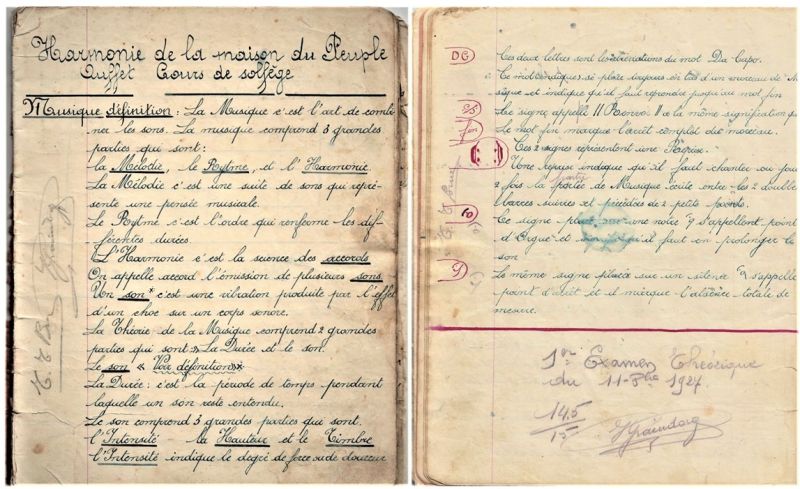 Harmonie de la maison du Peuple
Ouffet Cours de solfège
Musique définition : La Musique c'est l'art de combi-
ner les sons. La musique comprend 3 grandes
parties qui sont :
la Mélodie, le Rytme, et l'Harmonie.
La Mélodie c'est une suite de sons qui repré-
sente une pensée musicale.
Le Rytme c'est l'ordre qui renferme les dif-
férentes durées.
L'Harmonie c'est la science des accords
On appelle accord l'émission de plusieurs sons.
Un son* c'est une vibration produite par l'effet
d'un choc sur un corps sonore.
La Théorie de la Musique comprend 2 grandes
parties qui sont » La Durée et le son.
Le son « Voir définition »*
La Durée : c'est la période de temps pendant
laquelle un son reste entendu.
Le son comprend 3 grandes parties qui sont.
l'Intensité - la Hauteur et le Timbre
l'Intensité indique le degré de force ou de douceur
DC Ces deux lettres sont les abréviations du mot Da Capo.
Ce mot indiques se place toujours en bas d'un morceau de
sique et indique qu'il faut reprendre jusqu'au mot fin
Le signe appelé "Renvoi" a la même signification
Le mot fin marque l'arrêt complet du morceau.
Ces 2 signes représentent une Reprise.
Une reprise indique qu'il faut chanter ou
2 fois la partie de Musique écrite entre les 2 double
barres suivies et précédées de 2 petits points.
Ce signe placé sur une note s'appellent point
d'Orgue et qu'il faut en prolonger le
son
Le même signe placée sur un silence s'appelle
point d'arrêt et il marque l'absence totale de
mesure.
1er Examen Théorique
du 11-8bre 1927.
14.5
15